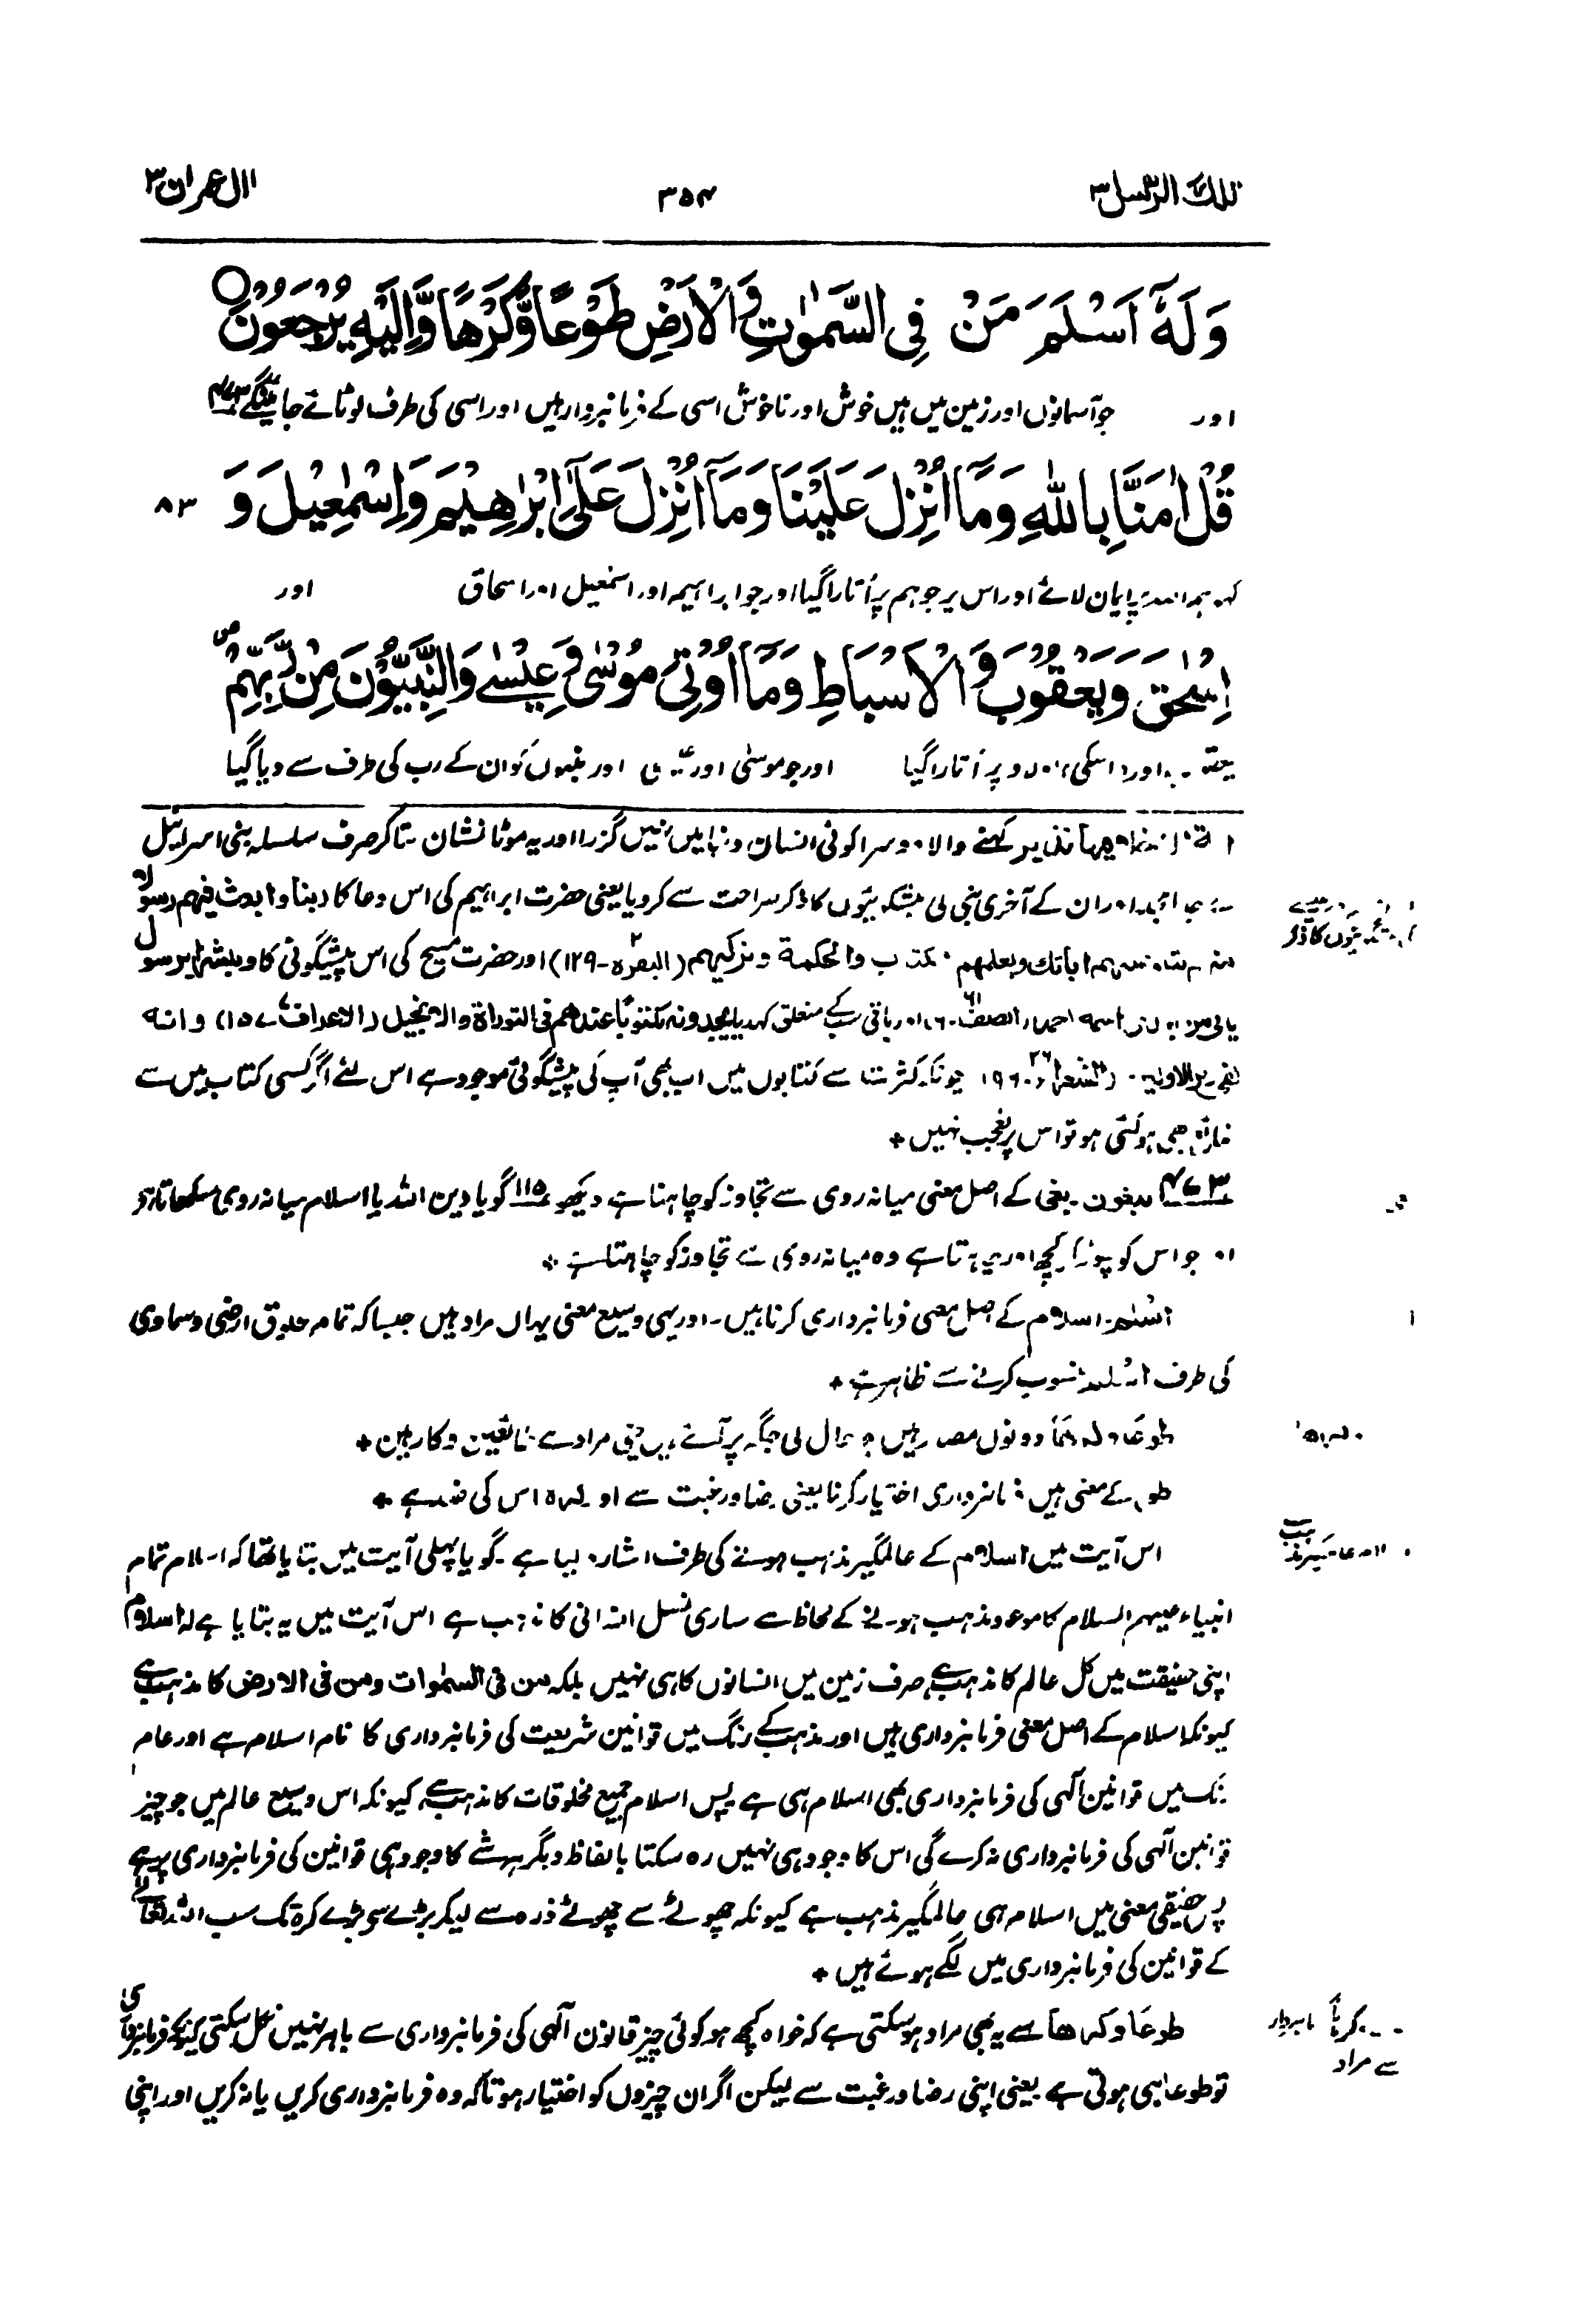 تلك الرسل ٣
٣٥٤
اٰل عمران ٣
وَلَهٗٓ اَسْلَمَ مَنْ فِي السَّمٰوٰتِ وَالْاَرْضِ طَوْعًا وَّكَرْهًا وَّاِلَيْهِ يُرْجَعُوْنَ
اور جو آسمانوں اور زمین میں ہیں خوش اور ناخوش اسی کے فرمانبردار ہیں اور اسی کی طرف لوٹائے جائینگے
قُلْ اٰمَنَّا بِاللّٰهِ وَمَآ اُنْزِلَ عَلَيْنَا وَمَآ اُنْزِلَ عَلٰٓى اِبْرٰهِيْمَ وَاِسْمٰعِيْلَ وَ
٨٣
کہو ہم اللہ پر ایمان لائے اور اس پر جو ہم پر اُتارا گیا اور جو ابراہیم اور اسمٰعیل اور اسحاق اور
اِسْحٰقَ وَيَعْقُوْبَ وَالْاَسْبَاطِ وَمَآ اُوْتِيَ مُوْسٰى وَعِيْسٰى وَالنَّبِيُّوْنَ مِنْ رَّبِّهِمْ
اور اسکی اولاد پر اُتارا گیا اور جو موسیٰ اور اور نبیوں کو ان کے رب کی طرف سے دیا گیا
کہنے والا دوسرا کوئی انسان دنیا میں نہیں گزرا اور یہ موٹا نشان بتا کر صرف سلسلہ بنی اسرائیل
ان کے آخری نبی کی پیشگوئیوں کا ذکر صراحت سے کر دیا یعنی حضرت ابراہیم کی اس دعا کا ربنا وابعث فیهم رسولا
ویعلمهم والحکمة ویزکیهم (البقرہ ۲-۱۲۹) اور حضرت مسیح کی اس پیشگوئی کا ومبشرا برسول
اسمه احمد الصف اور باقی سب کے متعلق کہدیا یجدونه مکتوبا عندهم فی التوراة والانجیل (الاعراف ۷-۱۵۷) وانه
۲۶-۱۹۶ چونکہ کثرت سے کتابوں میں اب بھی آپ کی پیشگوئی موجود ہے اس لئے اگر کسی کتاب میں سے
بھی ہو گئی ہو تو اس پر تعجب نہیں +
۴۷۳ یبغون۔ بغی کے اصل معنی میانہ روی سے تجاوز کو چاہنا ہے دیکھو ۱۱۵ گویا دین اللہ یا اسلام میانہ روی سکھاتا ہے اور
جو اس کو چھوڑ کر کچھ اور چاہتا ہے وہ میانہ روی سے تجاوز کو چاہتا ہے +
اسلم۔ اسلام کے اصل معنی فرمانبرداری کرنا ہیں۔ اور یہی وسیع معنی یہاں مراد ہیں جیسا کہ تمام مخلوق ارضی و سماوی
کی طرف منسوب کرنے سے ظاہر ہے +
دونوں مصدر ہیں جو حال کی جگہ پر آئے ہیں یعنی مراد ہے طائعین وکارہین +
طوع کے معنی ہیں فرمانبرداری اختیار کرنا یعنی رضا و رغبت سے اور کرہ اس کی ضد ہے +
اس آیت میں اسلام کے عالمگیر مذہب ہونے کی طرف اشارہ کیا ہے۔ گویا پہلی آیت میں بتایا تھا کہ اسلام تمام
انبیاء علیہم السلام کا موعود مذہب ہونے کے لحاظ سے ساری نسل انسانی کا مذہب ہے اس آیت میں یہ بتایا ہے کہ اسلام
اپنی حقیقت میں کل عالم کا مذہب ہے صرف زمین میں انسانوں کا ہی نہیں بلکہ من فی السمٰوات ومن فی الارض کا مذہب ہے
کیونکہ اسلام کے اصل معنی فرمانبرداری ہیں اور مذہب کے رنگ میں قوانین شریعت کی فرمانبرداری کا نام اسلام ہے اور عام
رنگ میں قوانین الٰہی کی فرمانبرداری بھی اسلام ہی ہے پس اسلام جمیع مخلوقات کا مذہب ہے کیونکہ اس وسیع عالم میں جو چیز
قوانین الٰہی کی فرمانبرداری نہ کرے گی اس کا وجود ہی نہیں رہ سکتا بالفاظ دیگر ہر شے کا وجود ہی قوانین کی فرمانبرداری پر ہے
پس حقیقی معنی میں اسلام ہی عالمگیر مذہب ہے کیونکہ چھوٹے سے چھوٹے ذرہ سے لیکر بڑے سے بڑے کرہ تک سب اللہ تعالیٰ
کے قوانین کی فرمانبرداری میں لگے ہوئے ہیں +
طوعًا وکرھًا سے یہ بھی مراد ہو سکتی ہے کہ خواہ کچھ ہو کوئی چیز قانون الٰہی کی فرمانبرداری سے باہر نہیں نکل سکتی کیونکہ فرمانبرداری
تو طوعًا ہی ہوتی ہے یعنی اپنی رضا و رغبت سے لیکن اگر ان چیزوں کو اختیار ہوتا کہ وہ فرمانبرداری کریں یا نہ کریں اور اپنی
سے مراد